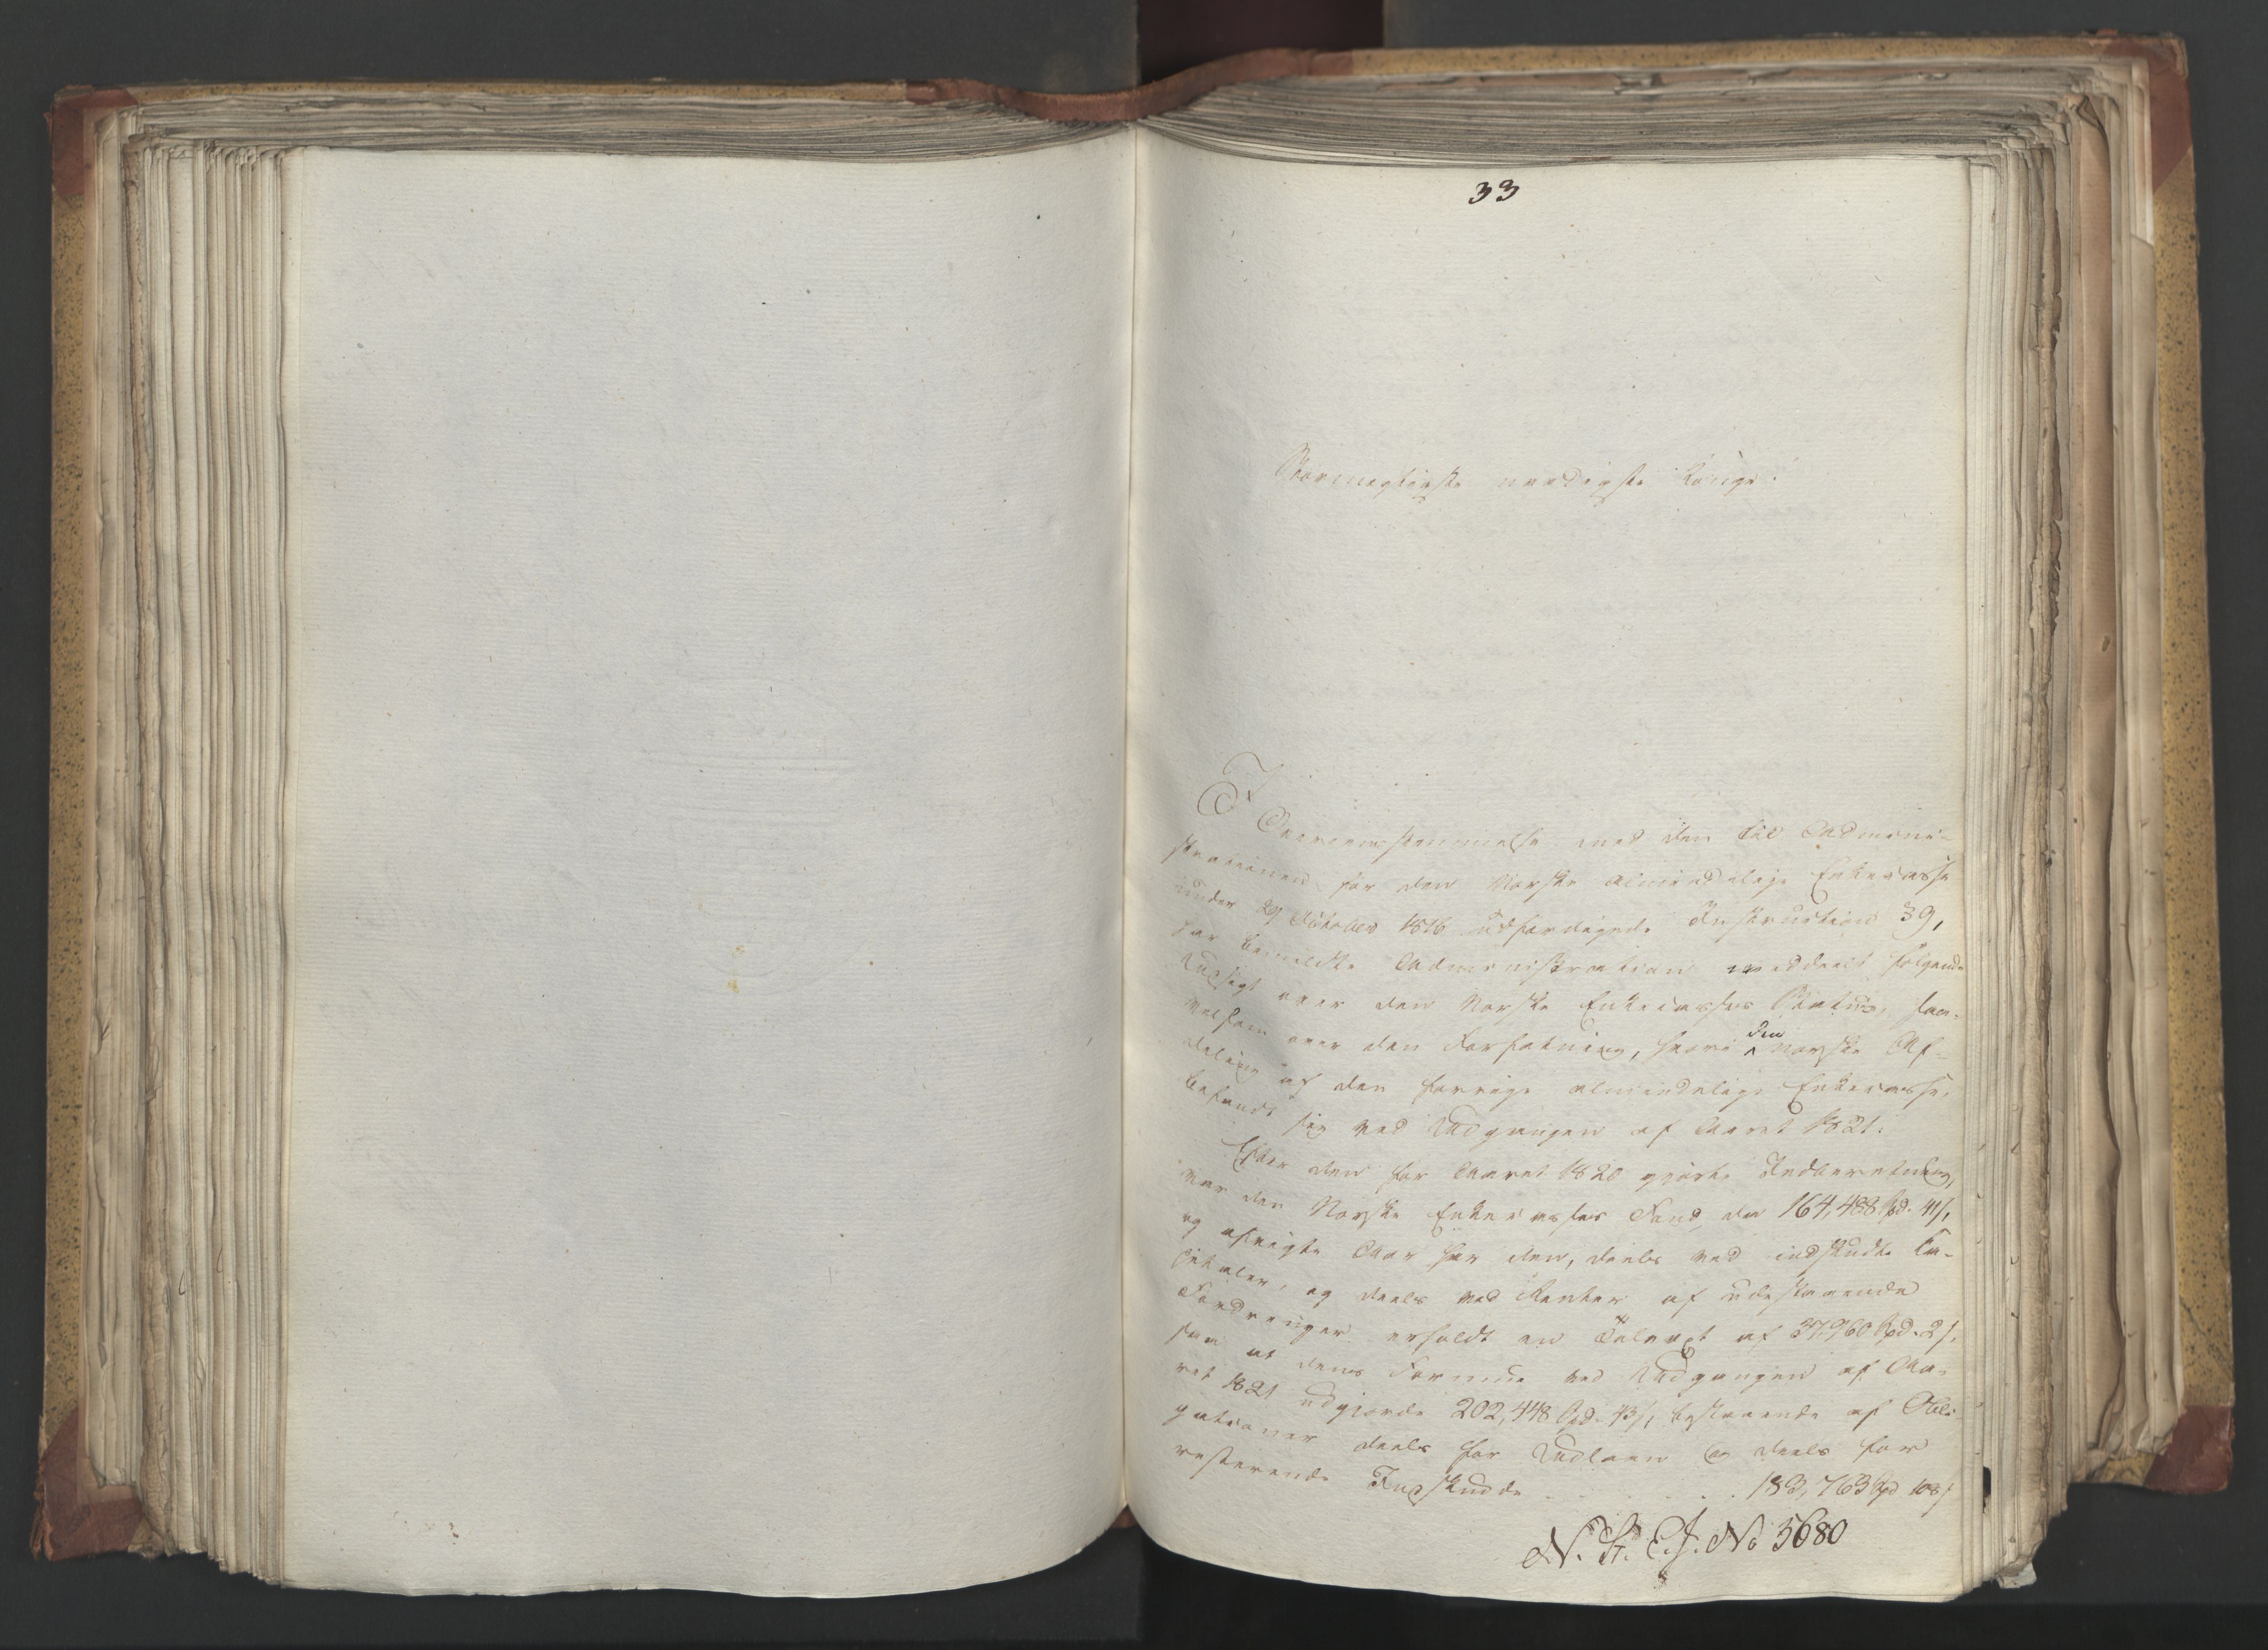 33
Stormægtigste naadigste Konge!
I Overeensstemmelse med den til Admini-
strationen for den Norske almindelige Enkecasse
under 29 October 1816 udfærdigede Instruction 39,
har bemeldte Administration meddeelt følgende
Udsigt over den Norske Enkecasses Status, saa-
velsom over den Forfatning, hvori den Norske Af-
deling af den forrige almindelige Enkecasse,
befandt sig ved Udgangen af Aaret 1821:
Efter den for Aaret 1820 gjorte Indberetning,
var den Norske Enkecasses Fond da 164,488 Spd. 41 s,
og afvigte Aar har den, deels ved indskudte Ca-
pitaler, og deels ved Renter af udestaaende
Fordringer erholdt en Tilvæxt af 37,960 Spd. 2 s,
saa at dens Formue ved Udgangen af Aa-
ret 1821 udgjorde 202,448 Spd. 43 s, bestaaende af Obli-
gationer deels for Udlaan og deels for
resterende Indskudde . . . . . 183,763 Spd 108 s
N. St. E. J. No 5680